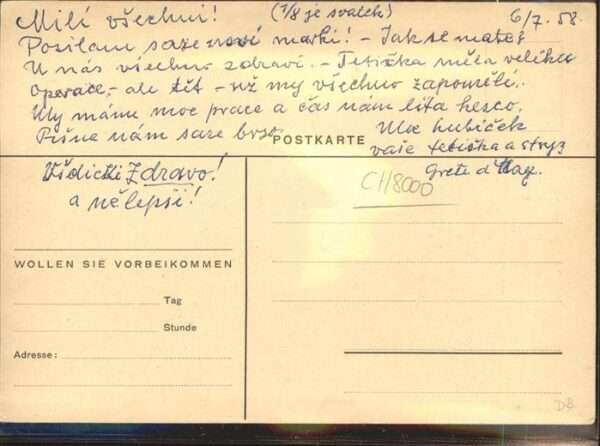 Milí všechni! (1/8 je svatek) 6/7. 58.
Posilam saze nové marki! - Jak se mate?
U nás všechno zdraví. - Tetička měla velikou
Operace, - ale těť - už my všechno zapoměli.
My máme moc prace a čas nám lita hesco.
Pišne nám saze brso
POSTKARTE
Moc hubiček
vaše tetička a stryz
Grete d
Všdicki Zdravo!
a nělepší!
CH8000
WOLLEN SIE VORBEIKOMMEN
Tag
Stunde
Adresse:
DB